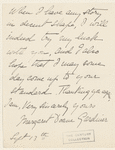 When I have any story
in decent shape, I will
indeed try my luck
with you, and I also
hope that I may some
day come up to your
standard. Thanking you again
I am, Very sincerely yours
Margaret Doane Gardiner
Sept 13th